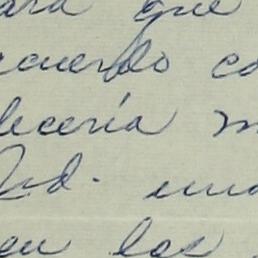 ara que
acuerdo co
lecería m
Ud. una
en los